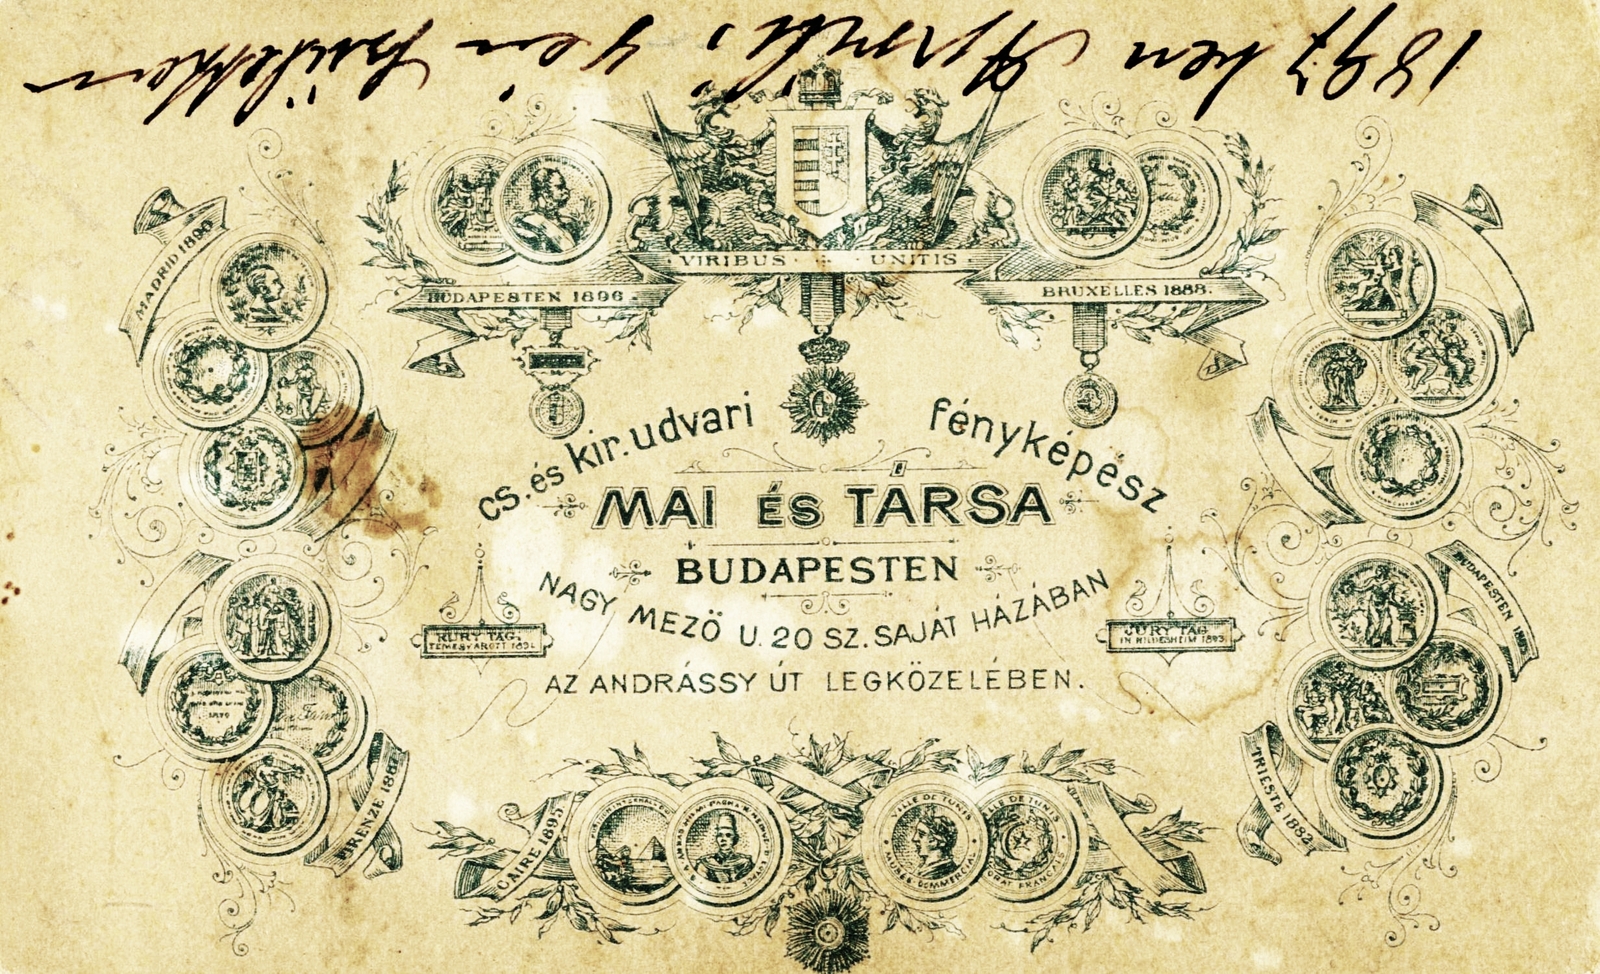 1897 ben Április 4 én születtem
VIRIBUS UNITIS
BUDAPESTEN 1896.
BRUXELLES 1888.
MADRID 1890
cs. és kir. udvari fényképész
MAI ÉS TÁRSA
BUDAPESTEN
NAGY MEZŐ U. 20 SZ. SAJÁT HÁZÁBAN
AZ ANDRÁSSY ÚT LEGKÖZELÉBEN.
JURY TAG.
JURY TAG
IN HILDESHEIM 1893
BUDAPESTEN
FIRENZE 1887
TRIESTE 1882
CAIRE 1895
VILLE DE TUNIS
VILLE DE TUNIS